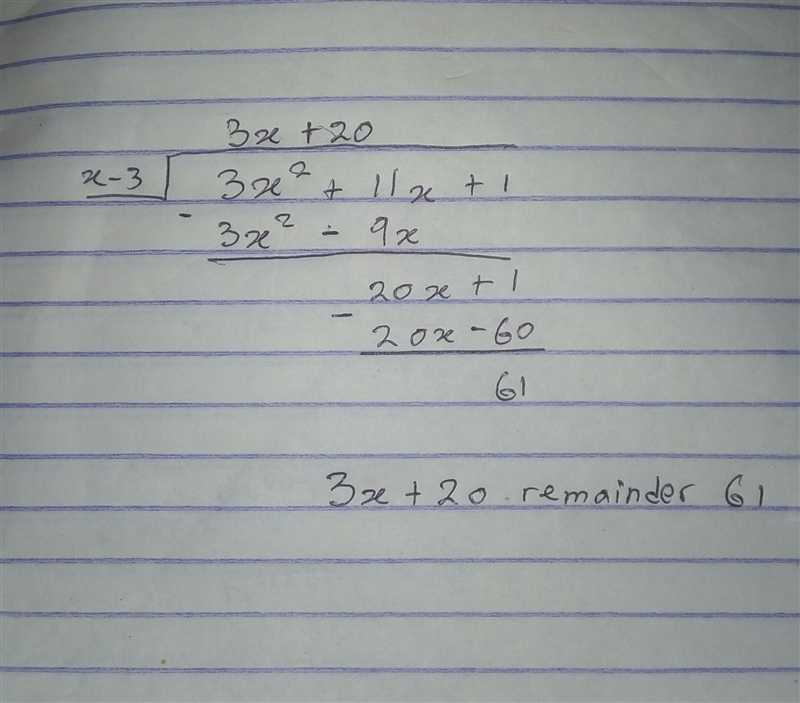 3x + 20
x - 3 3x² + 11x + 1
- 3x² - 9x
20x + 1
- 20x - 60
61
3x + 20 remainder 61